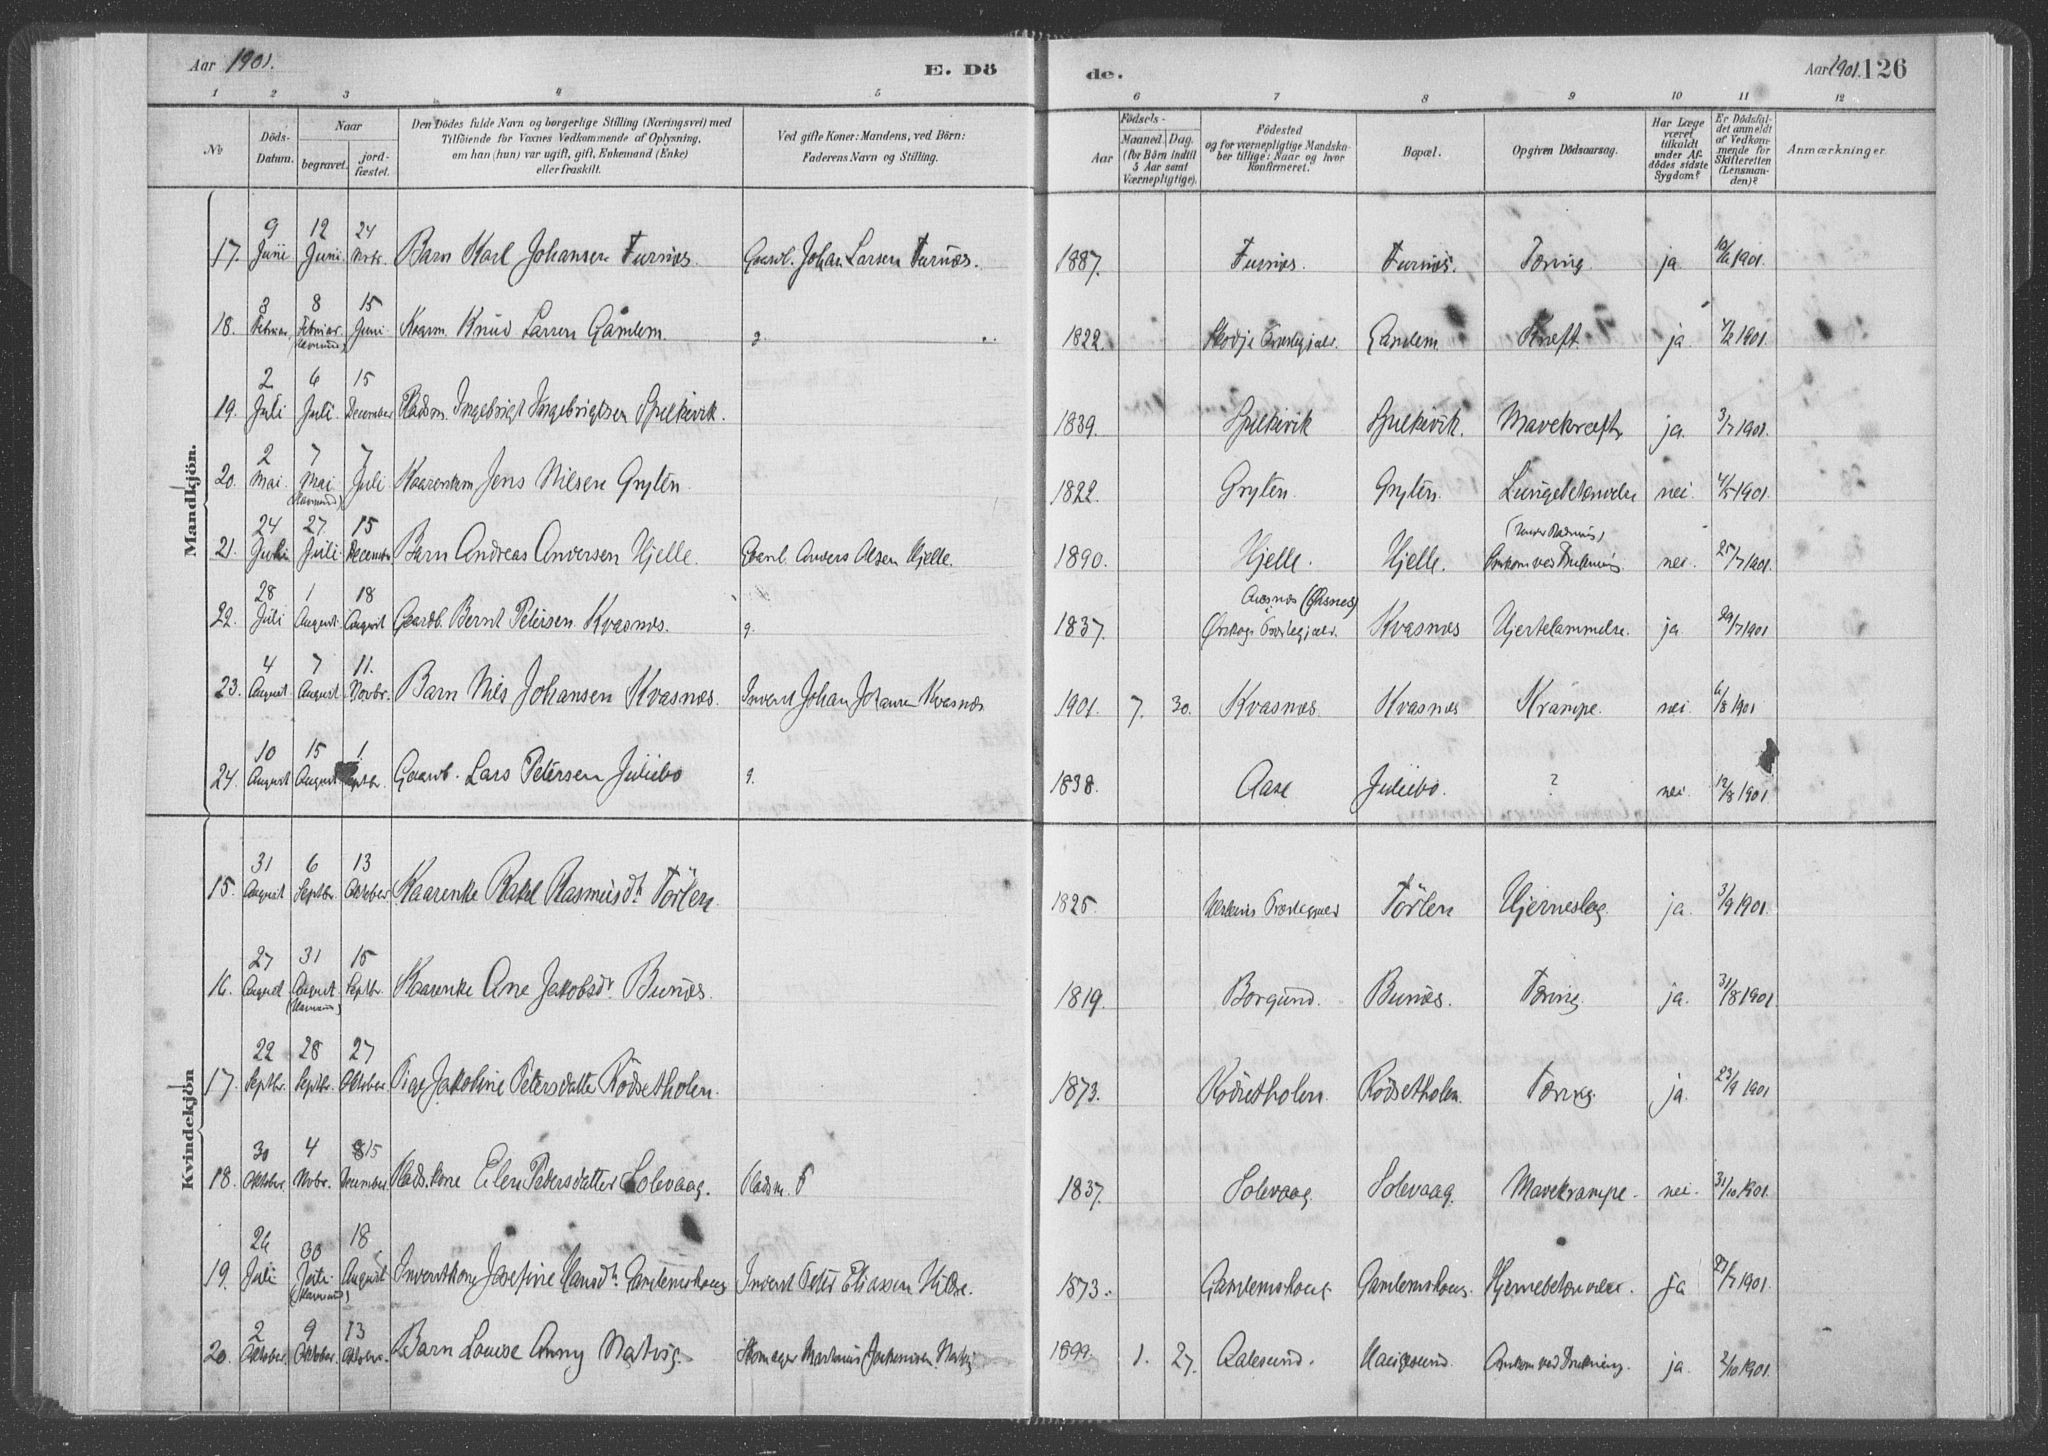 Aar 1901.
E. Dö
de.
Aar 1901. 126
1 2 3 4 5 6 7 8 9 10 11 12
No
Döds-Datum.
Naar
begravet.
jord-fæstet.
Den Dödes fulde Navn og borgerlige Stilling (Næringsvei) med
Tilföiende for Voxnes Vedkommende af Oplysning,
om han (hun) var ugift, gift, Enkemand (Enke)
eller fraskilt.
Ved gifte Koner: Mandens, ved Börn:
Faderens Navn og Stilling.
Aar
Födsels-
Maaned. Dag.
(for Börn indtil
5 Aar samt
Værnepligtige).
Födested
og for værnepligtige Mandska-
ber tillige: Naar og hvor
konfirmeret.
Bopæl.
Opgiven Dödsaarsag.
Har Læge
været
tilkaldt
under Af-
dödes sidste
Sygdom?
Er Dödsfal-
det anmeldt
af Vedkom-
mende for
Skifteretten
(Lensman-
den)?
Anmærkninger.
Mandkjön.
17. 9 Juni 12 Juni 24 Novbr. Barn Karl Johansen Furnæs. Gaardb. Johan Larsen Furnæs. 1887. Furnæs. Furnæs. Tæring. ja. 10/6 1901.
18. 3 Februar 8 Februar. 15 Juni Kaarm. Knud Larsen Gamlem. g. 1822. Skodje Præstegjæld. Gamlem Kræft. ja 4/2 1901.
19. 2 Juli 6 Juli. 15 December Pladsm. Ingebrigt Ingebrigtsen Spilkivik. 1839. Spilkivik Spilkivik. Mavekræft. ja. 3/7 1901.
20. 2 Mai. 7 Mai 7 Juli Kaarenkem. Jens Nilsen Gryten. 1822. Gryten. Gryten. Lungebetændelse nei. 4/5 1901.
21. 24 Juli 27 Juli. 15 December Barn Andreas Andersen Hjelle. Gaardb. Anders Olsen Hjelle. 1890. Hjelle. Hjelle. Omkom ved Drukning. nei. 25/7 1901.
22. 28 Juli 1 August. 18 August Gaardb. Bernt Petersen Kvasnæs. g. 1837. Ørskogs Præstegjæld. Kvasnæs Hjertelammelse. ja. 29/7 1901
23. 4 August. 7 August 11. Novbr. Barn Nils Johansen Kvasnæs. Inderst Johan Johansen Kvasnæs 1901. 7. 30. Kvasnæs. Kvasnæs Krampe. nei. 6/8 1901
24. 10 August 15 August 1. Septbr. Gaardb. Lars Petersen Juliebø g. 1838. Aase Juliebø. ? nei. 12/8 1901.
Kvindekjön
15. 31 August 6 Septbr. 13 Oktober Kaarenke Rakel Rasmusdt. Törlen. 1825. Törlen Hjerneslag ja. 3/9 1901.
16. 27 August 31 August 15 Septbr. Kaarenke Ane Jakobsdt. Bunæs. 1819. Borgund. Bunæs. Tæring. ja. 31/8 1901
17. 22 Septbr. 28 Septbr. 27 Oktober Pige Jakoline Petersdatter Rödsetholen. 1873. Rödsetholen. Rödsetholen. Tæring. ja. 23/9 1901
18. 30 Oktober. 4 Novbr. 15 December Pladskone Elen Petersdatter Solevaag. Pladsm. 1837. Solevaag Solevaag. Mavekrampe. nei. 31/10 1901.
19. 26 Juli 30 Juli 18. August Inderstkone Josefine Hansdt. Gamlemshaug Inderst Peter Eliassen Hildre. 1873. Gamlemshaug Gamlemshaug. Hjernebetændelse. ja 27/7 1901.
20. 2 Oktober. 9 Oktober. 13 Oktober. Barn Louise Anny Natvig. Skomager Martinus Natvig 1899. 1. 27. Aalesund. Haugesund. Omkom ved Drukning. ja. 2/10 1901.